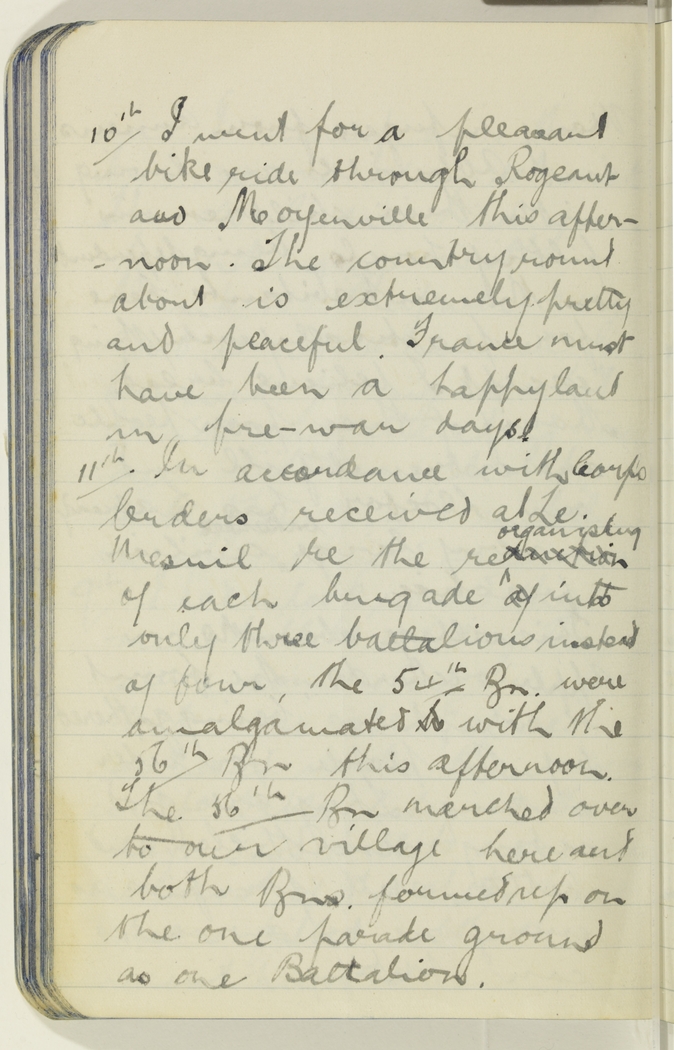 10th/ I went for a pleasant
bike ride through Rogeant
and Moyenville this after-
-noon. The country round
about is extremely pretty
and peaceful. France must
have been a happy land
in pre-war days.
11th. In accordance with Corps
orders received at Le
organising
Mesnil re the re
of each brigade into
only three battalions instead
of four, the 54th Bn. were
amalgamated with the
56th Bn this afternoon.
The 56th Bn marched over
to our village here and
both Bns. formed up on
the one parade ground
as one Battalion.